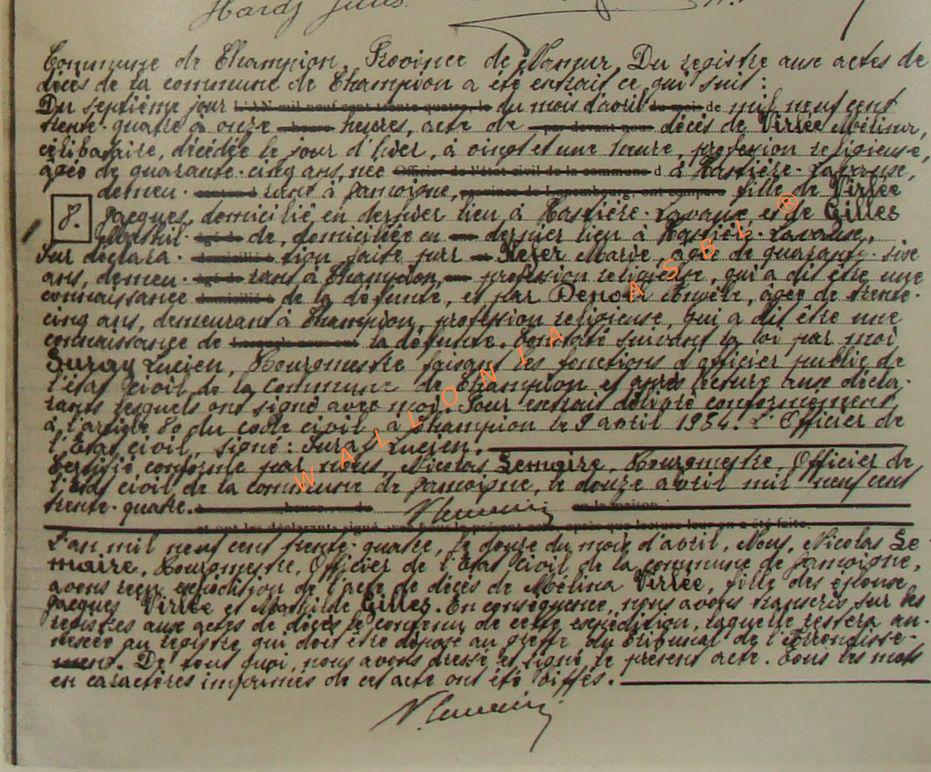 Hardy Jules.
Commune de Champion, Province de Namur, Du registre aux actes de
décès de la commune de Champion a été extrait ce qui suit :
Du septième jour L'AN mil neuf cent trente quatre, le du mois d'avril du mois de mil neuf cent
trente-quatre à onze heures heures, acte de par devant nous décès de Virrée Mélina,
célibataire, décédée le jour d'hier, à vingt et une heure, profession religieuse,
âgée de quarante-cinq ans, née Officier de l'état civil de la commune d à Hastière-Lavaux,
demeu- rant à Jamoigne, province de Luxembourg, ont comparu fille de Virrée
8. Jacques, domicilié en dernier lieu à Hastière-Lavaux et de Gilles
Mathil- âgé de de, domiciliée en dernier lieu à Hastière-Lavaux,
Sur déclara- domicilié à tion faite par Marie, âgée de quarante-six
ans, demeu- âgé de rant à Champion, profession religieuse, qui a dit être une
connaissance domicilié à de la défunte, et par Denoël âgée de trente-
cinq ans, demeurant à Champion, profession religieuse, qui a dit être une
connaissance de la défunte. Constaté suivant la loi par moi
Suray Lucien, Bourgmestre faisant les fonctions d'officier public de
l'état civil de la Commune de Champion et après lecture aux décla-
rants lesquels ont signé avec moi. Pour extrait délivré conformément
à l'article 80 du code civil, à Champion le 9 avril 1934. L'Officier de
l'État civil, signé : Suray Lucien.
Certifié conforme par nous, Nicolas Lemaire, Bourgmestre, Officier de
l'état civil de la commune de Jamoigne, le douze avril mil neuf cent
trente-quatre. heure, d N Lemaire la maison
et ont les déclarants signé avec nous le présent acte, après que lecture leur en a été faite.
L'an mil neuf cent trente-quatre, le douze du mois d'avril, Nous, Nicolas Le-
maire, Bourgmestre, Officier de l'État civil de la commune de Jamoigne,
avons reçu expédition de l'acte de décès de Mélina Virrée, fille des époux
Jacques Virrée et Mathilde Gilles. En conséquence, nous avons transcris, sur les
registres aux actes de décès le contenu de cette expédition, laquelle restera an-
nexée au registre qui doit être déposé au greffe du tribunal de l'Arrondisse-
ment. De tout quoi, nous avons dressé et signé, le présent acte. Tous les mots
en caractères imprimés de cet acte ont été biffés.
N Lemaire
WALLONIA ASBL ®